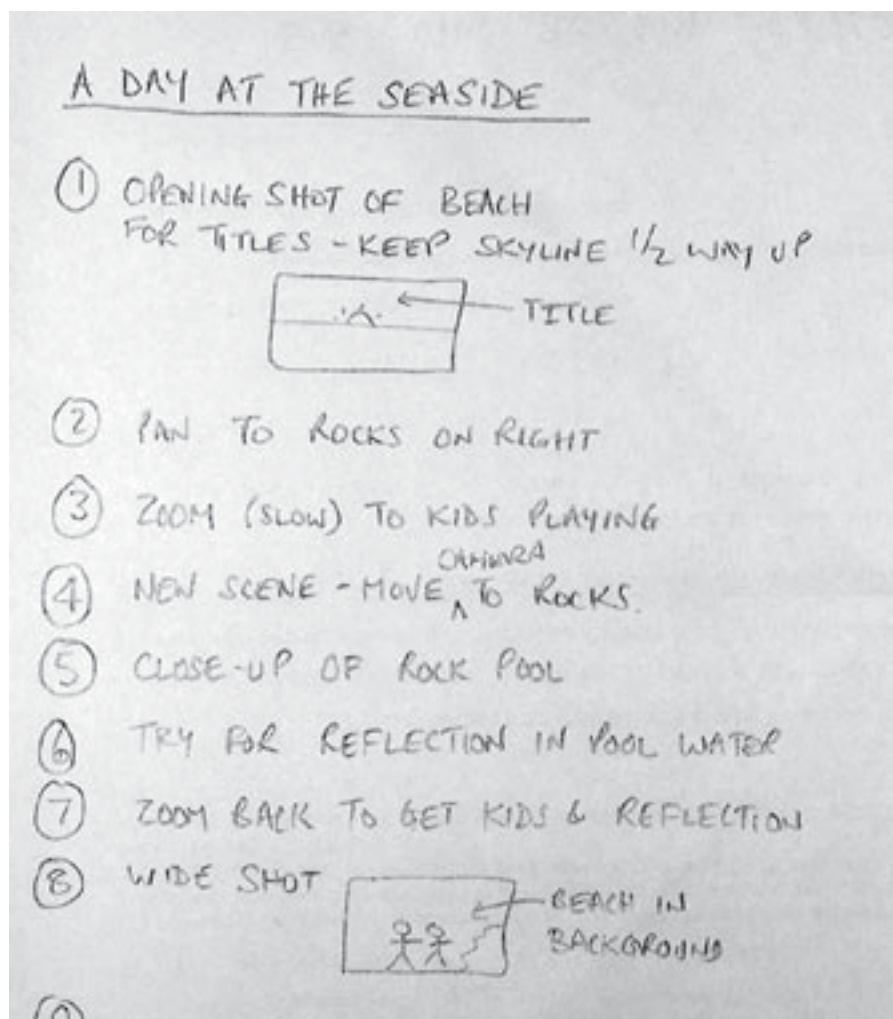 A DAY AT THE SEASIDE
① OPENING SHOT OF BEACH
FOR TITLES - KEEP SKYLINE 1/2 WAY UP
TITLE
② PAN TO ROCKS ON RIGHT
③ ZOOM (SLOW) TO KIDS PLAYING
CAMERA
④ NEW SCENE - MOVE ^ TO ROCKS.
⑤ CLOSE-UP OF ROCK POOL
⑥ TRY FOR REFLECTION IN POOL WATER
⑦ ZOOM BACK TO GET KIDS & REFLECTION
⑧ WIDE SHOT
BEACH IN
BACKGROUND